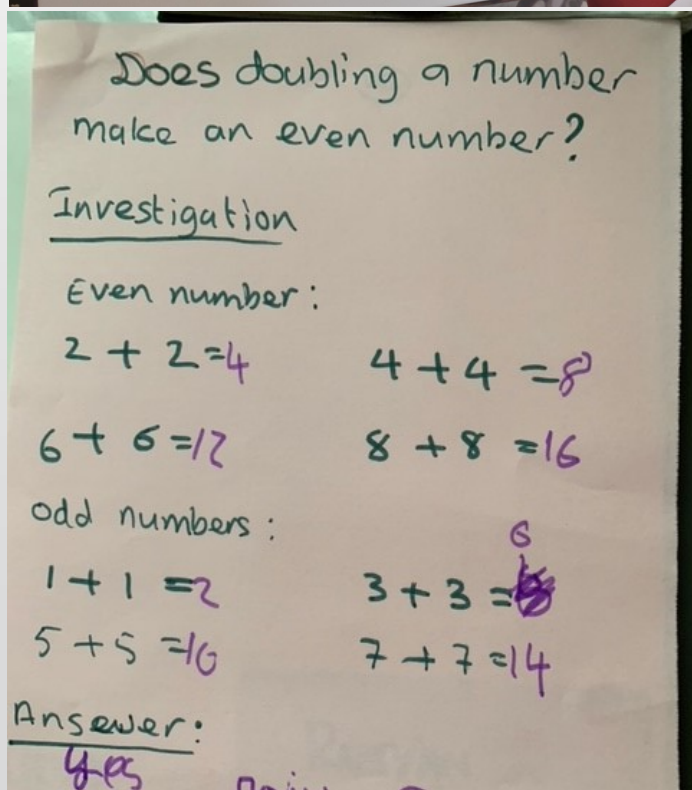 Does doubling a number
make an even number?
Investigation
Even number:
2 + 2=4 4 + 4 =8
6 + 6=12 8 + 8 =16
odd numbers:
6
1 + 1 =2 3 + 3 =
5 + 5 =10 7 + 7 =14
Answer:
yes